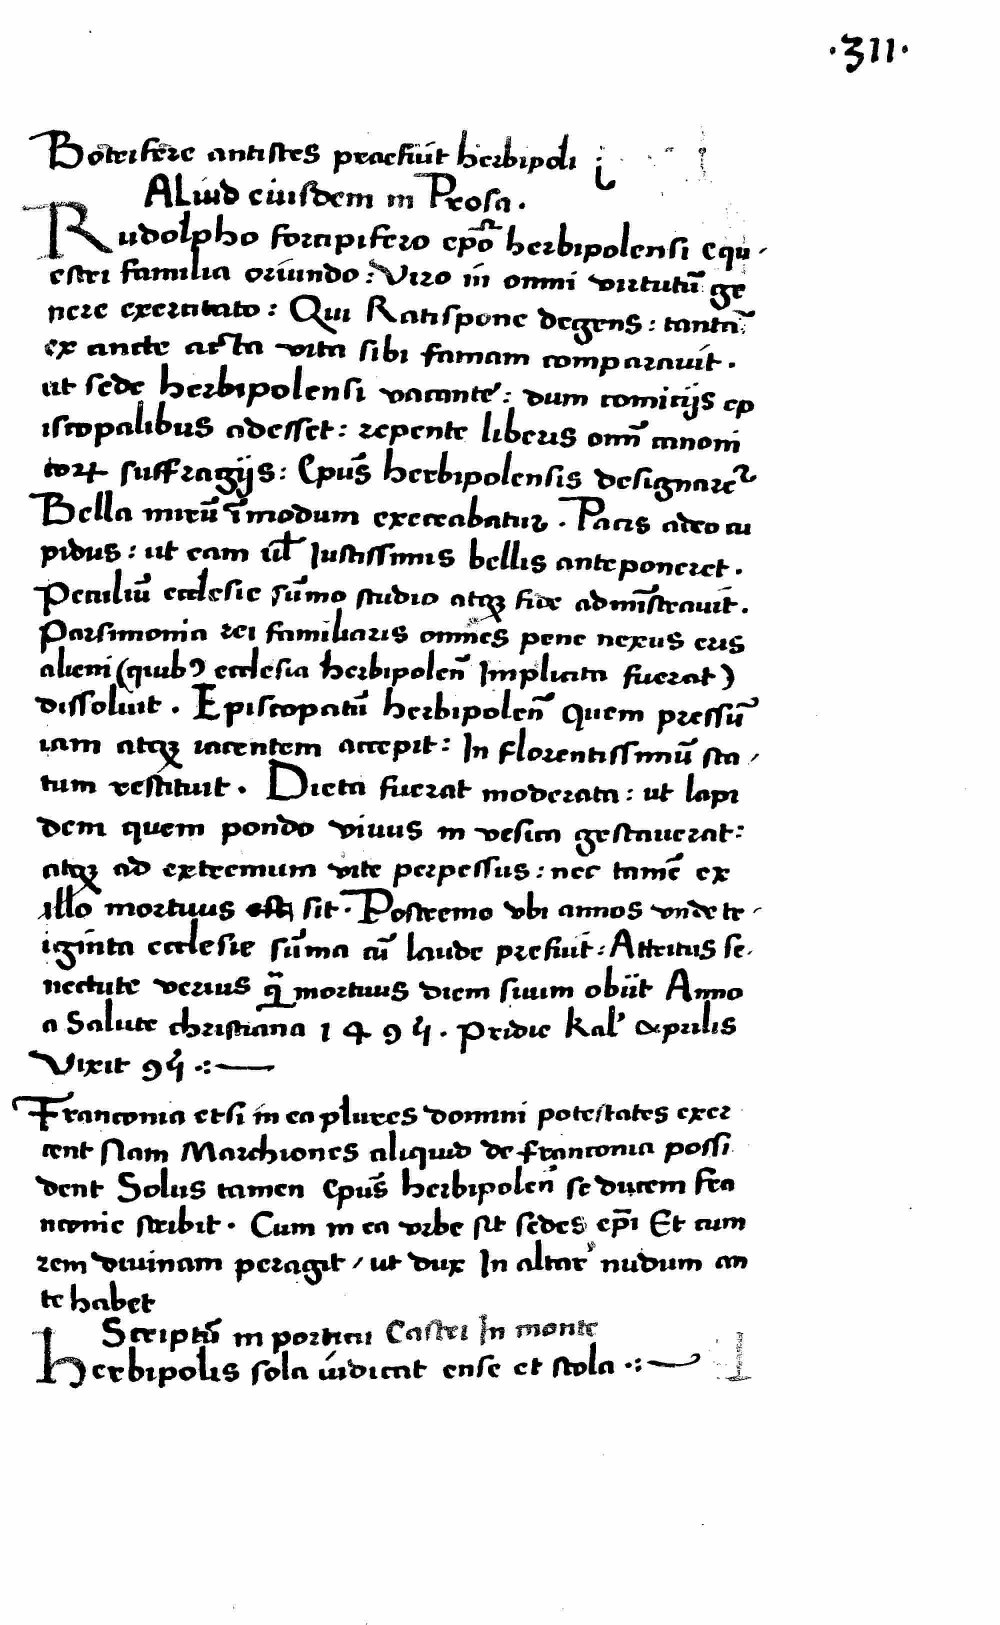 ·311·
Boterifere antistes praefuit herbipoli
ALiud eiusdem in Prosa.
Rudolpho forapifero epõ herbipolensi equ-
estri familia oriundo: Viro in omni virtutū ge
nere exercitato: Qui Ratispone degens: tantā
ex ancte acta vita sibi famam comparauit.
ut sede herbipolensi vacante: dum comicijs ep
iscopalibus adesset: repente liberis omī canoni
coꝝ suffragijs: Epūs herbipolensis designaret᷑
Bella mirū ī modum execrabatur. Pacis adeo cu
pidus: ut eam ul̄ Justissimis bellis anteponeret.
Peculiū ecclesie sūmo studio atqꝫ fide admīstrauit.
Parsimonia rei familiaris omnes pene nexus eris
alieni (quibꝰ ecclesia herbipoleñ Implicata fuerat)
dissoluit. Episcopatū herbipoleñ Quem pressū
iam atqꝫ iacentem accepit: In florentissimū sta/
tum restituit. Dieta fuerat moderata: ut lapi
dem quem pondo viuus in vesica gestauerat:
atqꝫ ad extremum vite perpessus: nec tamē ex
illo mortuus sit. Postremo vbi annos vnde tr-
iginta ecclesie sūma cū laude prefuit: Attritus se-
nectute verius q̄ mortuus diem suum obijt Anno
a Salute christiana 1495. Pridie Kal' Aprilis
Vixit 95 .:—
Franconia etsi in ea plures domini potestates exer
cent Nam Marchiones aliquid de franconia possi
dent Solus tamen Epūs herbipoleñ se ducem fra
nconie scribit. Cum in ea vrbe sit sedes ep̄i Et cum
rem diuinam peragit / ut dux In altar' nudum an
te habet
Scriptū in porticu Castri In monte
herbipolis sola iudicat ense et stola .:—